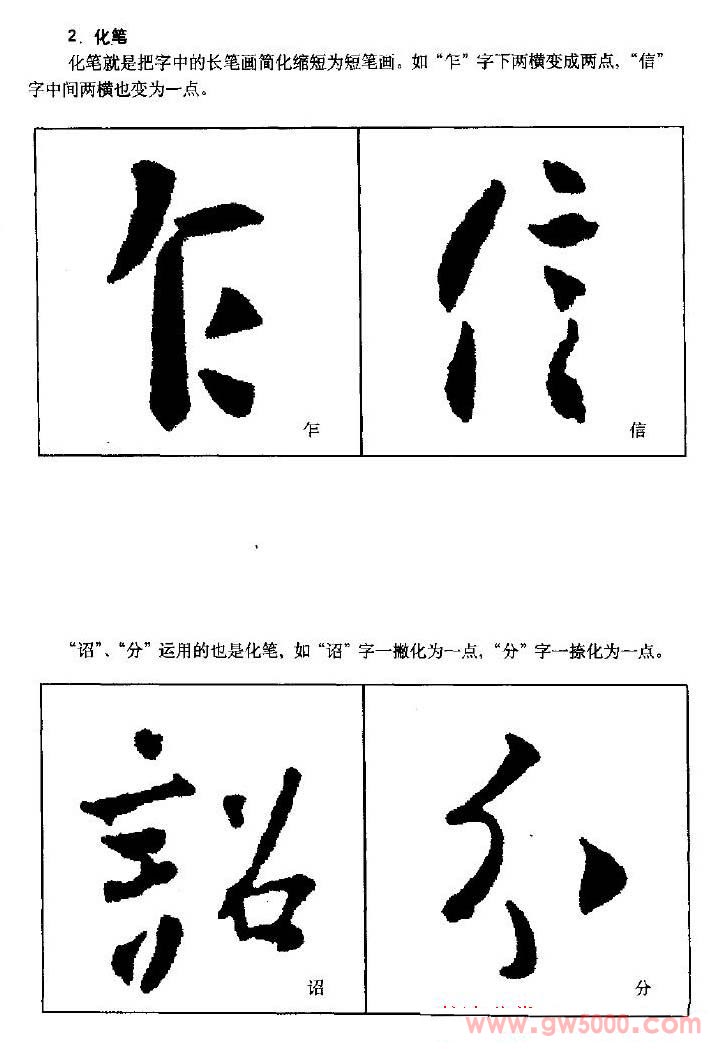 2．化笔
化笔就是把字中的长笔画简化缩短为短笔画。如“乍”字下两横变成两点，“信”
字中间两横也变为一点。
乍
信
“诏”、“分”运用的也是化笔，如“诏”字一撇化为一点，“分”字一捺化为一点。
诏
分
www.gw5000.com